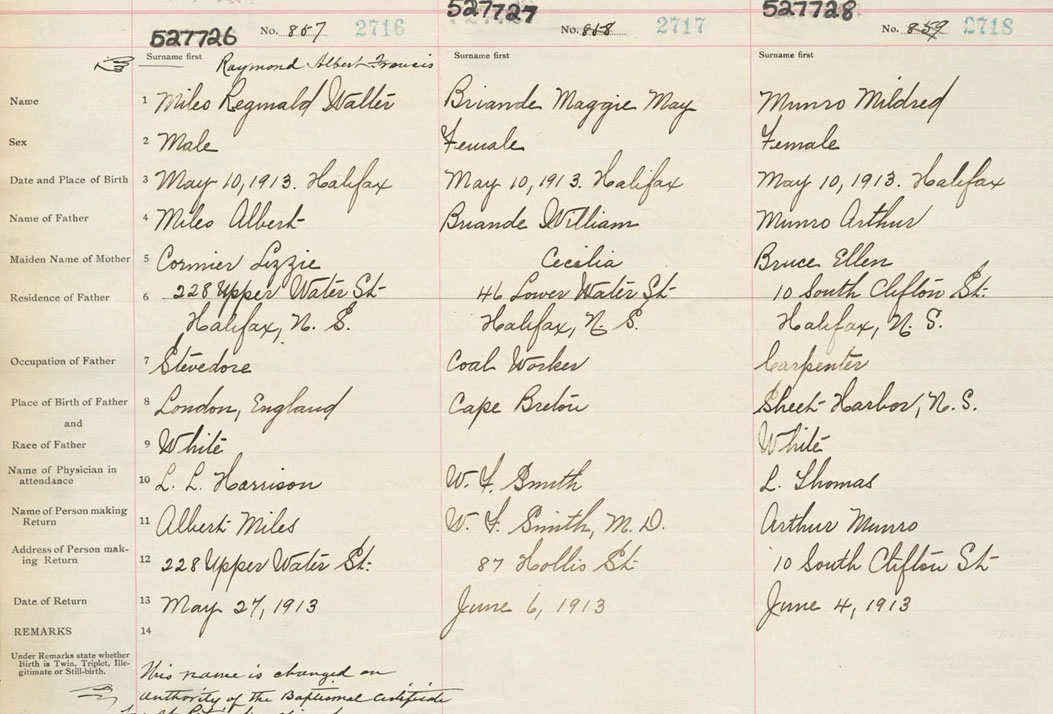 527726 527727 527728
No. 857 2716 No. 858 2717 No. 859 2718
Surname first Raymond Albert Francis Surname first Surname first
Name 1 Miles Reginald Walter Briande Maggie May Munro Mildred
Sex 2 Male Female Female
Date and Place of Birth 3 May 10, 1913. Halifax May 10, 1913. Halifax May 10, 1913. Halifax
Name of Father 4 Miles Albert Briande William Munro Arthur
Maiden Name of Mother 5 Cormier Lizzie Cecilia Bruce Ellen
Residence of Father 6 228 Upper Water St. 46 Lower Water St. 10 South Clifton St.
Halifax, N. S. Halifax, N. S. Halifax, N. S.
Occupation of Father 7 Stevedore Coal Worker Carpenter
Place of Birth of Father 8 London, England Cape Breton Sheet Harbor, N. S.
and
Race of Father 9 White White
Name of Physician in
attendance 10 L. L. Harrison W. F. Smith L. Thomas
Name of Person making
Return 11 Albert Miles W. F. Smith, M. D. Arthur Munro
Address of Person mak-
ing Return 12 228 Upper Water St. 87 Hollis St. 10 South Clifton St.
Date of Return 13 May 27, 1913 June 6, 1913 June 4, 1913
REMARKS 14
Under Remarks state whether
Birth is Twin, Triplet, Ille-
gitimate or Still-birth.
This name is changed on
authority of the Baptismal Certificate